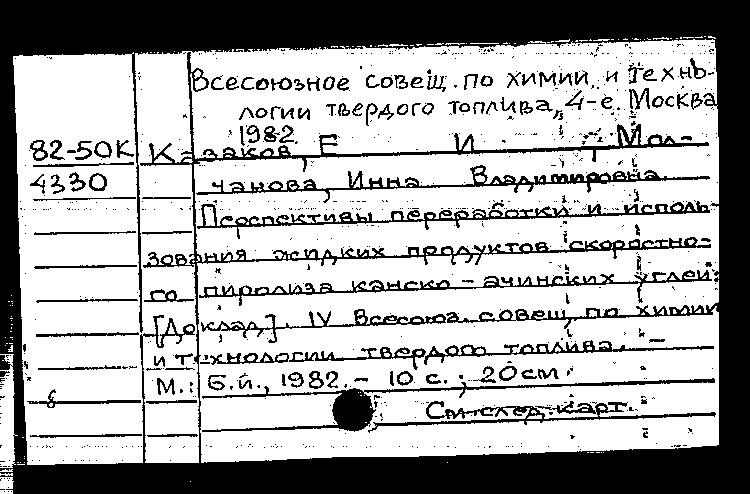 Всесоюзное совещ. по химии и техно-
логии твердого топлива, 4-е. Москва
1982
82-50К Казаков, Е И , Мол-
4330 чанова, Инна Владимировна.
Перспективы переработки и исполь-
зования жидких продуктов скоростно-
го пиролиза канско-ачинских углей:
[Доклад]. IV Всесоюз. совещ. по химии
и технологии твердого топлива. –
М.: Б.и., 1982. – 10 с.; 20 см.
См. след. карт.